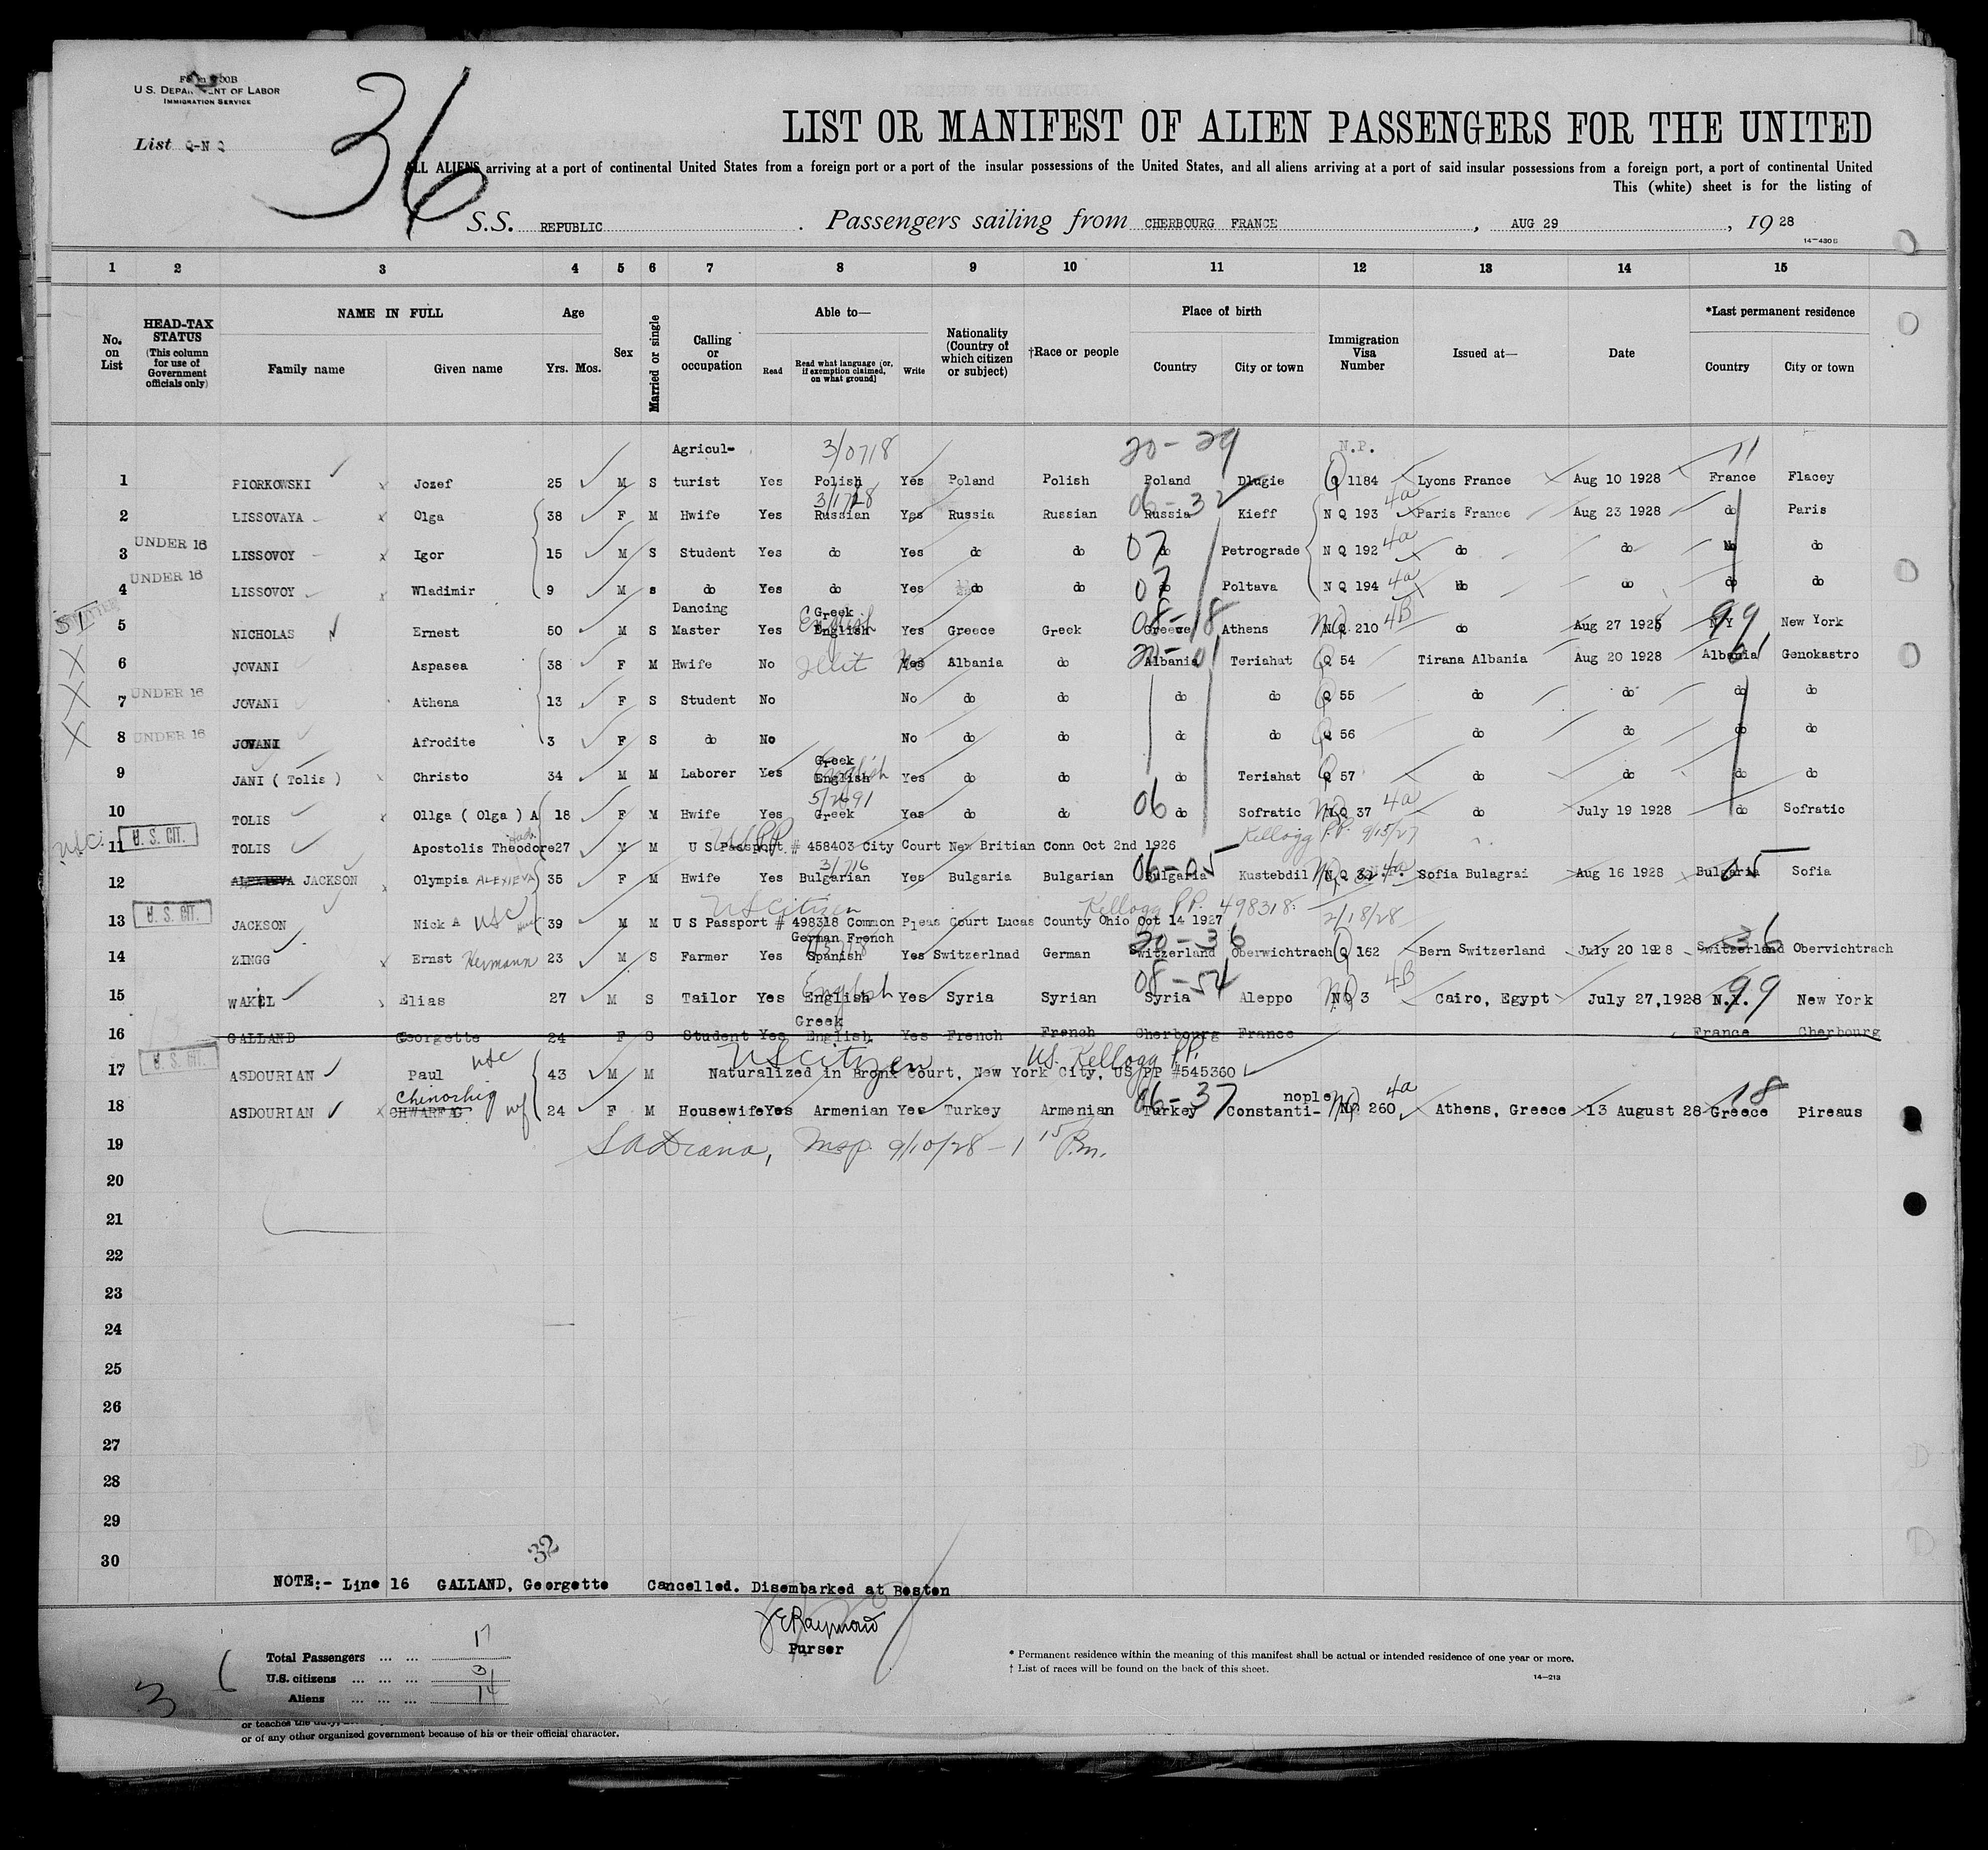 U.S. DEPARTMENT OF LABOR
IMMIGRATION SERVICE
36
List Q-N Q
LIST OR MANIFEST OF ALIEN PASSENGERS FOR THE UNITED
ALL ALIENS arriving at a port of continental United States from a foreign port or a port of the insular possessions of the United States, and all aliens arriving at a port of said insular possessions from a foreign port, a port of continental United
This (white) sheet is for the listing of
S.S. REPUBLIC. Passengers sailing from CHERBOURG FRANCE, AUG 29, 19 28
14-430B
1 2 3 4 5 6 7 8 9 10 11 12 13 14 15
No. on List
HEAD-TAX STATUS (This column for use of Government officials only)
NAME IN FULL
Family name Given name
Age
Yrs. Mos.
Sex
Married or single
Calling or occupation
Able to—
Read Read what language (or, if exemption claimed, on what ground) Write
Nationality (Country of which citizen or subject)
†Race or people
Place of birth
Country City or town
Immigration Visa Number
Issued at—
Date
*Last permanent residence
Country City or town
Agricul- 3/0718 20-29 N.P. 11
1 PIORKOWSKI Jozef 25 M S turist Yes Polish Yes Poland Polish Poland Dlugie Q 1184 Lyons France Aug 10 1928 France Flacey
2 LISSOVAYA Olga 38 F M Hwife Yes Russian Yes Russia Russian Russia Kieff N Q 193 4a Paris France Aug 23 1928 do Paris
3 UNDER 16 LISSOVOY Igor 15 M S Student Yes do Yes do do 07 do Petrograde N Q 192 4a do do do do
4 UNDER 16 LISSOVOY Wladimir 9 M s do Yes do Yes do do 07 do Poltava N Q 194 4a do do do do
Dancing Greek English 08-18
5 NICHOLAS Ernest 50 M S Master Yes English Yes Greece Greek Greece Athens N Q 210 4B do Aug 27 1928 N Y 99 New York
6 JOVANI Aspasea 38 F M Hwife No Illit Yes No Albania do Albania Teriahat Q 54 Tirana Albania Aug 20 1928 Albania Genokastro
7 UNDER 16 JOVANI Athena 13 F S Student No No do do do do Q 55 do do do do
8 UNDER 16 JOVANI Afrodite 3 F S do No No do do do do Q 56 do do do do
Greek English
9 JANI ( Tolis ) Christo 34 M M Laborer Yes English Yes do do do Teriahat Q 57 do do do do
10 TOLIS Ollga ( Olga ) A 18 F M Hwife Yes Greek Yes do do 06 do Sofratic N Q 37 4a do July 19 1928 do Sofratic
USC. 11 U. S. CIT. TOLIS Apostolis Theodore 27 M M U S Passport # 458403 City Court New Britian Conn Oct 2nd 1926 Kellogg P.P. 9/15/27
3/716 06-05 05
12 ALEXIEVA JACKSON Olympia ALEXIEVA 35 F M Hwife Yes Bulgarian Yes Bulgaria Bulgarian Bulgaria Kustebdil N Q 32 4a Sofia Bulagrai Aug 16 1928 Bulgaria Sofia
US Citizen Kellogg P.P. 498318 2/18/28
13 U. S. CIT. JACKSON Nick A USC 39 M M U S Passport # 498318 Common Pleas Court Lucas County Ohio Oct 14 1927
German French 20-36 36
14 ZINGG Ernst Hermann 23 M S Farmer Yes Spanish Yes Switzerlnad German Switzerland Oberwichtrach Q 162 Bern Switzerland July 20 1928 Switzerland Obervichtrach
English 08-54 4B 99
15 WAKEL Elias 27 M S Tailor Yes English Yes Syria Syrian Syria Aleppo NQ 3 Cairo, Egypt July 27,1928 N.Y. New York
Greek
16 GALLAND Georgette 24 F S Student Yes English Yes French French Cherbourg France France Cherbourg
US citizen US. Kellogg P.P.
17 U. S. CIT. ASDOURIAN Paul USC 43 M M Naturalized in Bronx Court, New York City, US PP #545360
Chinorhig 06-37 nople 4a 18
18 ASDOURIAN CHWARFAG wf 24 F M Housewife Yes Armenian Yes Turkey Armenian Turkey Constanti- NQ 260 Athens, Greece 13 August 28 Greece Pireaus
19 9/10/28 - 1 15 P.m.
20
21
22
23
24
25
26
27
28
29
30
32
NOTE:- Line 16 GALLAND, Georgette Cancelled. Disembarked at Boston
Raymond
Purser
Total Passengers 17
U.S. citizens 3
Aliens 14
* Permanent residence within the meaning of this manifest shall be actual or intended residence of one year or more.
† List of races will be found on the back of this sheet.
14-213
3
or of any other organized government because of his or their official character.